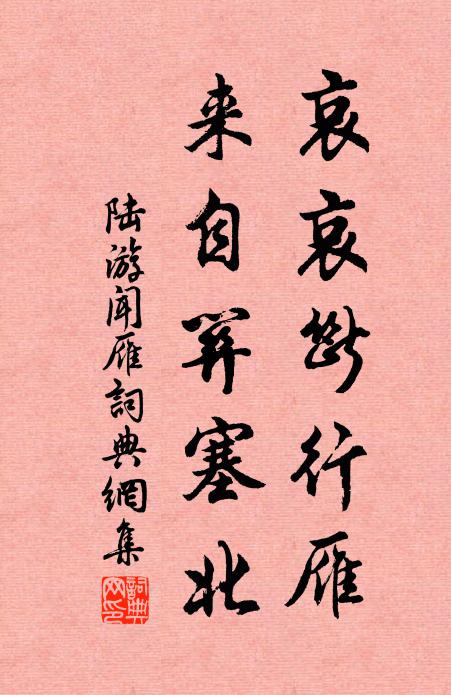 哀哀斷行雁
来自箕塞北
陆游闻雁詞典網集
詞典網印